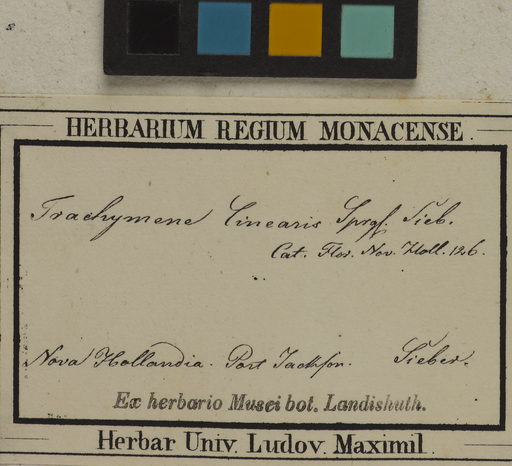 HERBARIUM REGIUM MONACENSE.
Trachymene linearis Sprgf. Sieb.
Cat. Flor. Nov. Holl. 126.
Nova Hollandia. Port Jackson. Sieber.
Ex herbario Musei bot. Landishuth.
Herbar Univ. Ludov. Maximil.